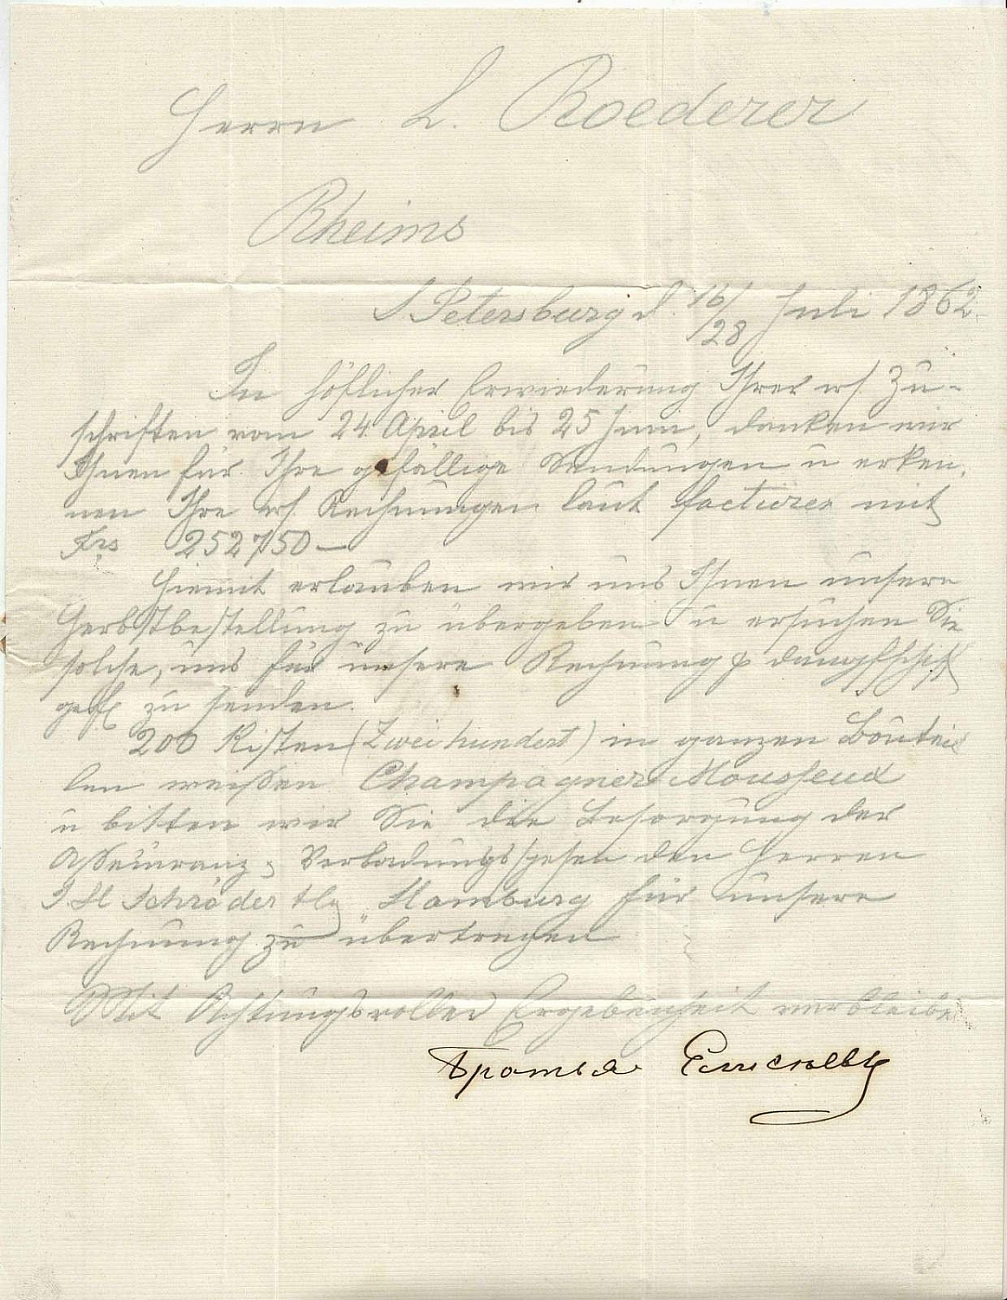 Herrn L. Roederer
Rheims
S Petersburg d. 16/28 Juli 1862.
In höflicher Erwiederung Ihrer w/. Zu-
schriften vom 24 April bis 25 Juni, danken wir
Ihnen für Ihre gefällige Sendungen u erken.
nen Ihre w/. Rechnungen laut facturen mit
Frs 252750 —
Hiemit erlauben wir uns Ihnen unsere
Herbstbestellung zu übergeben u ersuchen Sie
solche, uns für unsere Rechnung p dampfschiff
gefl zu senden.
200 Kisten (Zwei hundert) in ganzen Bouteil
len weißen Champagner Mousseux
u bitten wir Sie die Besorgung der
Asseuranz & Verladungsspesen den Herren
J H Schröder Hamburg für unsere
Rechnung zu übertragen
Mit Achtungsvoller Ergebenheit verbleiben
Братья Елисѣевы